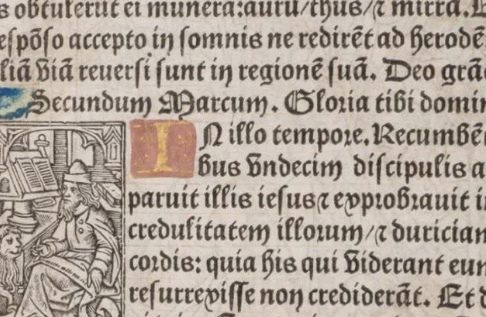 s obtulerut ei munera:auru/thus/⁊ mirra.
espõso accepto in somnis ne redirẽt ad herodẽ
liã viã reuersi sunt in regionẽ suã. Deo grã
Secundum Marcum. Gloria tibi domin
IN illo tempore. Recumbẽ
bus vndecim discipulis a
paruit illis iesus⁊ exprobrauit i
credulitatem illorum/⁊ duriciam
cordis: quia his qui viderant eum
resurrexisse non crediderãt. Et